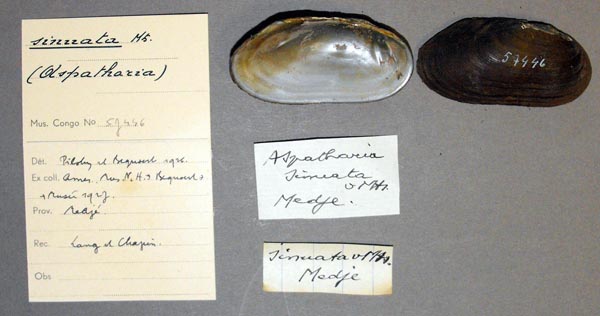 sinuata Mts.
(Aspatharia)
Mus. Congo No 57446
Dét. Pilsbry et Bequaert 1926.
Ex coll. Amer. Mus. N. H. & Bequaert &
Musée 1927.
Prov. Medjé
Rec. Lang et Chapin.
Obs
57446
Aspatharia
sinuata
v Mts.
Medje.
sinuata v Mts.
Medje